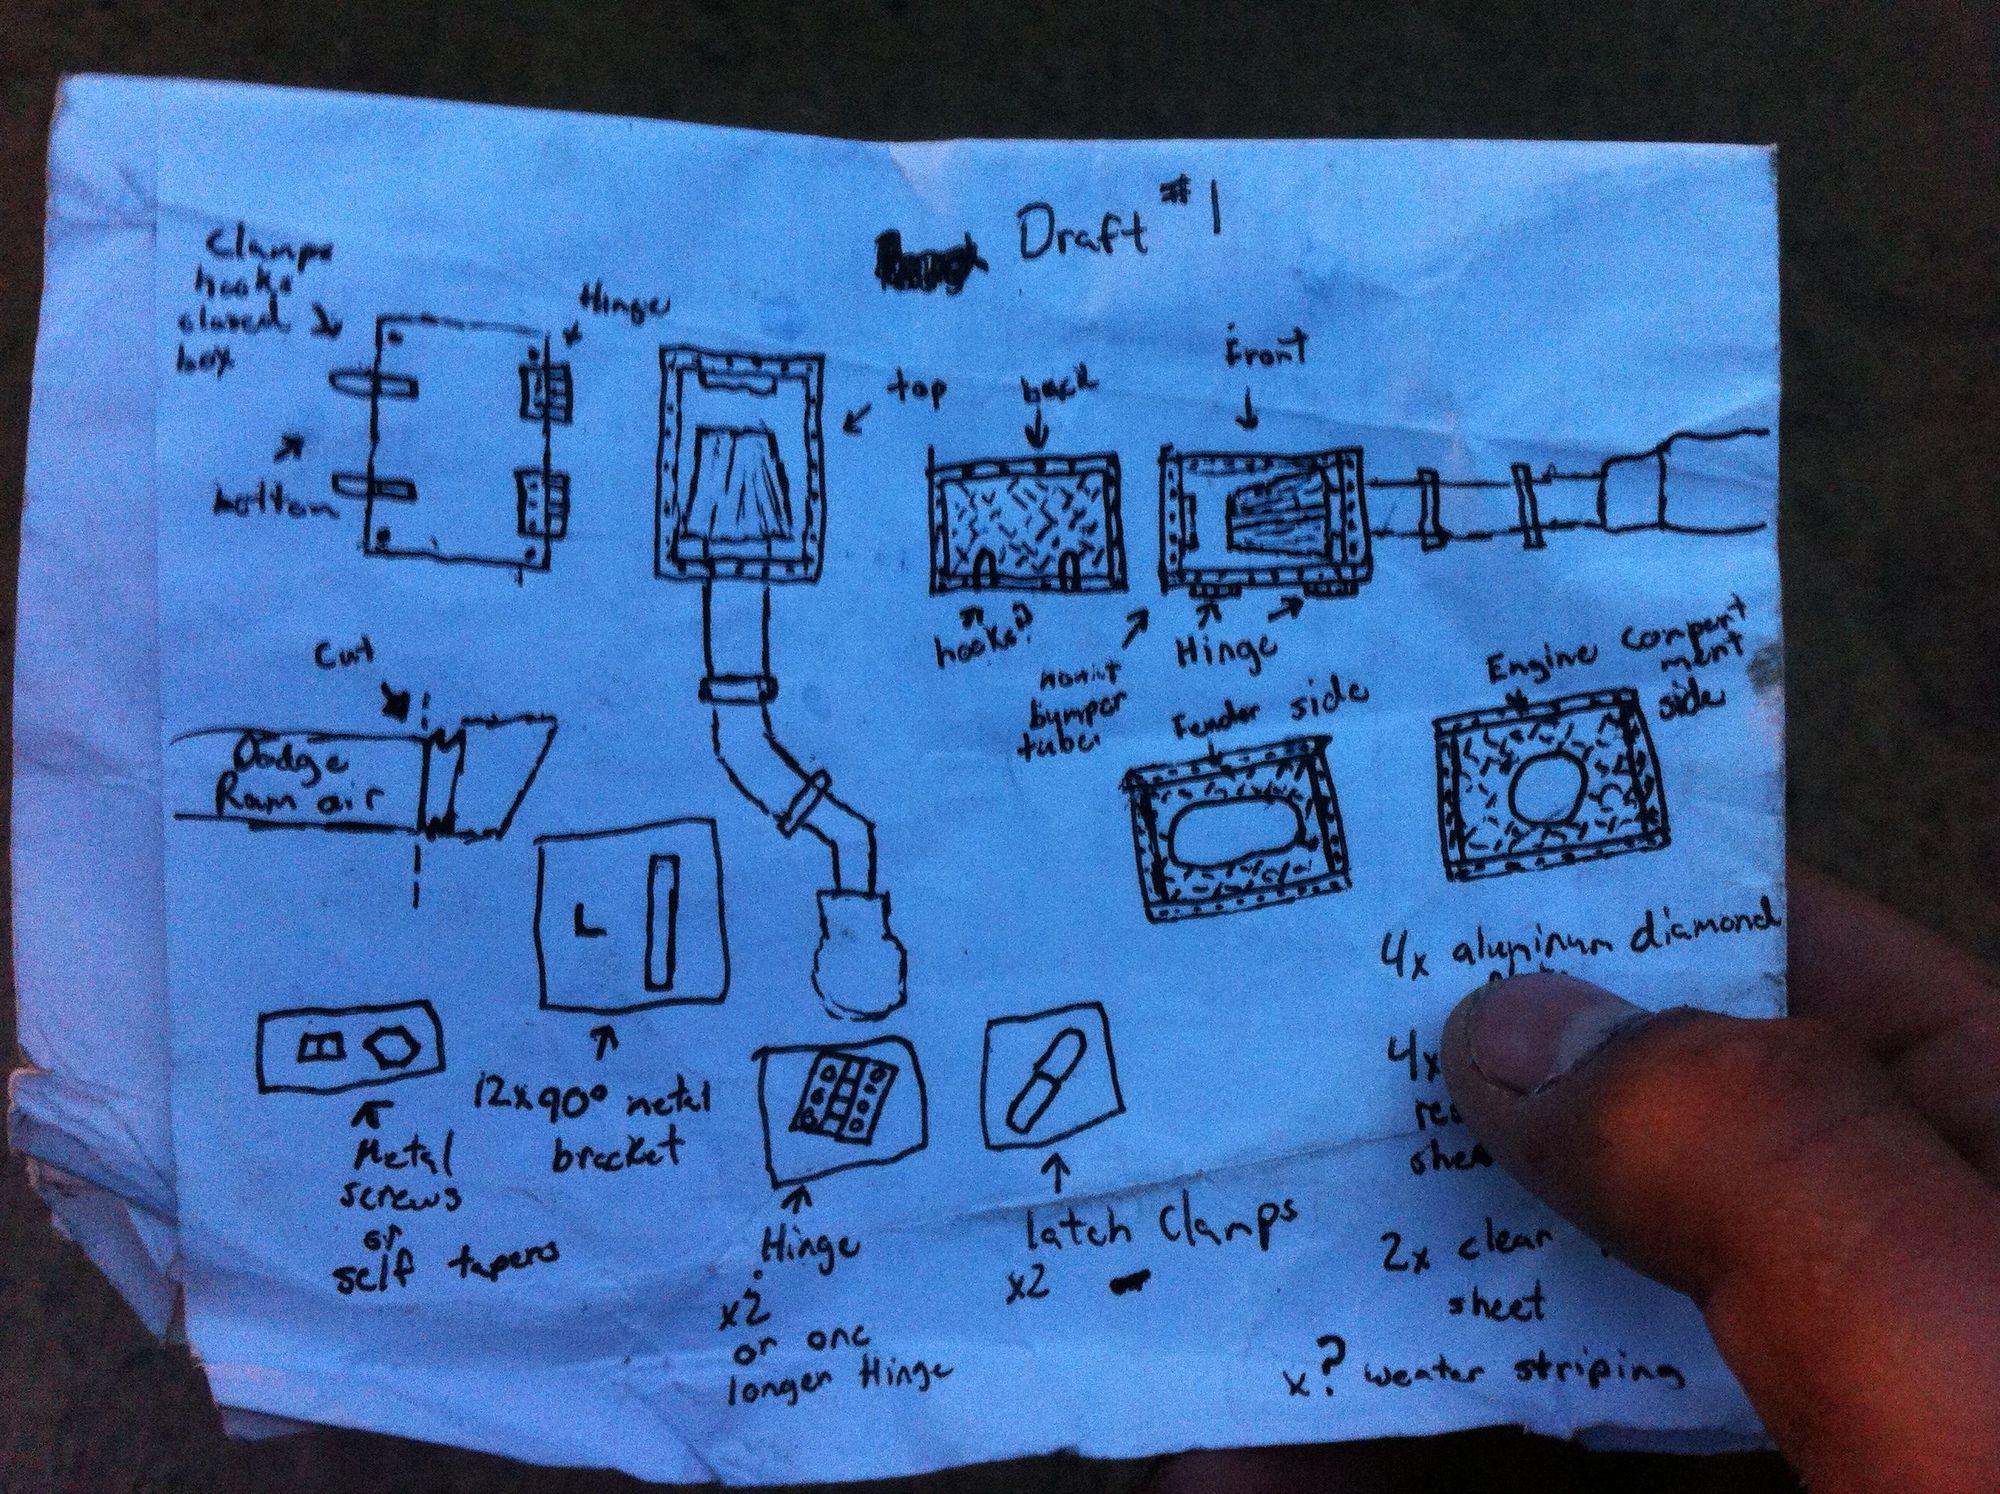 Draft #1
Clamps
hooks
closed
box
Hinge
bottom
top
back
Front
hooks?
Hinge
bumper
tuber
Cut
Dodge
Ram air
Fender side
Engine compart
ment
side
4x aluminum diamond
4x
shee
2x clear
sheet
x? weater striping
Metal
screws
or
self tapers
12x90° metal
bracket
Hinge
x2
or one
longer Hinge
latch Clamps
x2